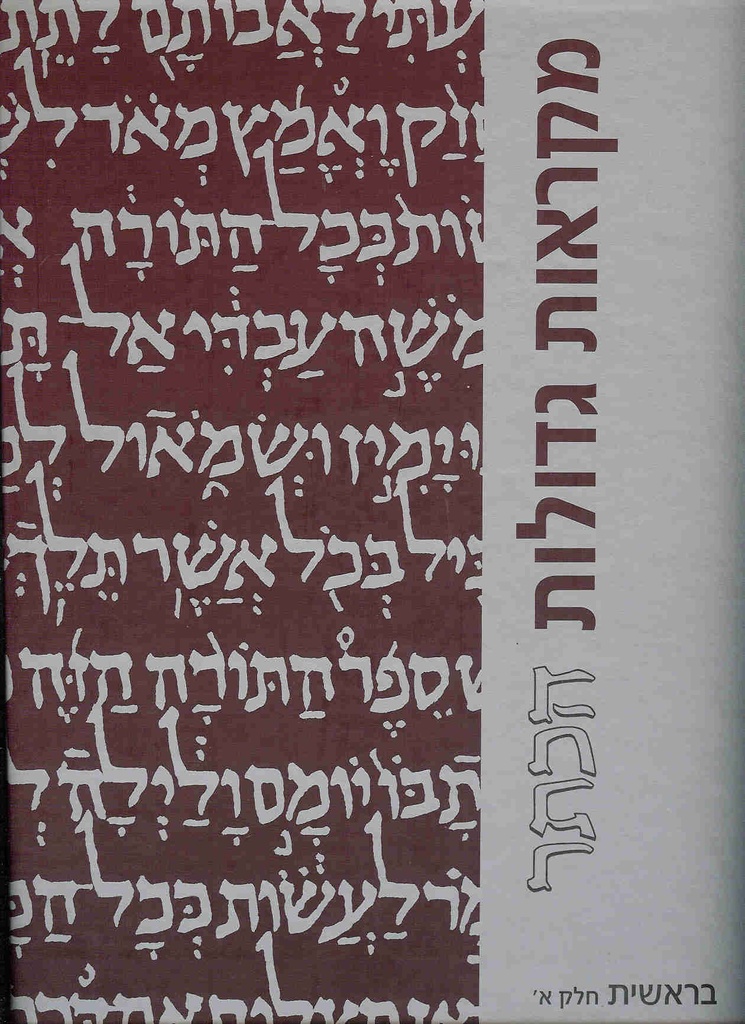 מקראות גדולות הכתר
בראשית חלק א'
לַאֲבוֹתָם לָתֵת
וֶאֱמַץ מְאֹד
כְּכָל הַתּוֹרָה
מֹשֶׁה עַבְדִּי אַל
יָמִין וּשְׂמֹאול
בְּכֹל אֲשֶׁר תֵּלֵךְ
סֵפֶר הַתּוֹרָה הַזֶּה
בּוֹ יוֹמָם וָלַיְלָה
לַעֲשׂוֹת כְּכָל